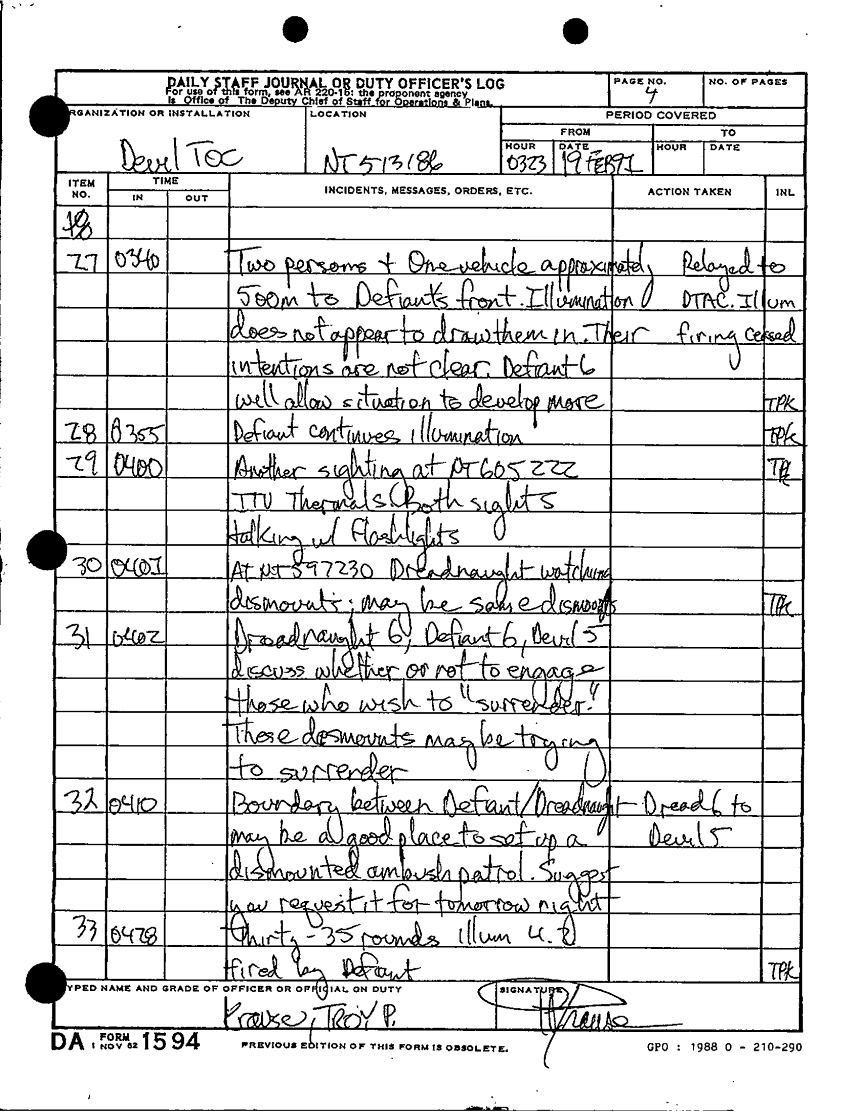 DAILY STAFF JOURNAL OR DUTY OFFICER'S LOG
For use of this form, see AR 220-15; the proponent agency
is Office of The Deputy Chief of Staff for Operations & Plans.
PAGE NO.
4
NO. OF PAGES
ORGANIZATION OR INSTALLATION
Devil TOC
LOCATION
NT 513186
PERIOD COVERED
FROM
TO
HOUR
0323
DATE
19 FEB 91
HOUR
DATE
ITEM NO.
TIME
IN
OUT
INCIDENTS, MESSAGES, ORDERS, ETC.
ACTION TAKEN
INL
27 0340 Two persons + One vehicle approximately Relayed to
500m to Defiant's front. Illumination DTAC. Illum
does not appear to draw them in. Their firing ceased
intentions are not clear. Defiant 6
will allow situation to develop more TPK
28 0355 Defiant continues illumination TPK
29 0400 Another sighting at NT 605222 TPK
ITV Thermals (Both sights
talking w/ Flashlights
30 0401 At NT 597230 Dreadnaught watching
dismounts; may be same dismounts TPK
31 0402 Dreadnaught 6, Defiant 6, Devil 5
discuss whether or not to engage
those who wish to "surrender."
These dismounts may be trying
to surrender
32 0410 Boundary between Defiant/Dreadnaught Dread 6 to
may be a good place to set up a Devil 5
dismounted ambush patrol. Suggest
you request it for tomorrow night
33 0428 Thirty-35 rounds illum 4.2
fired by Defiant TPK
TYPED NAME AND GRADE OF OFFICER OR OFFICIAL ON DUTY
Krause, TROY P.
SIGNATURE
TPKrause
DA FORM 1 NOV 62 1594
PREVIOUS EDITION OF THIS FORM IS OBSOLETE.
GPO : 1988 O - 210-290